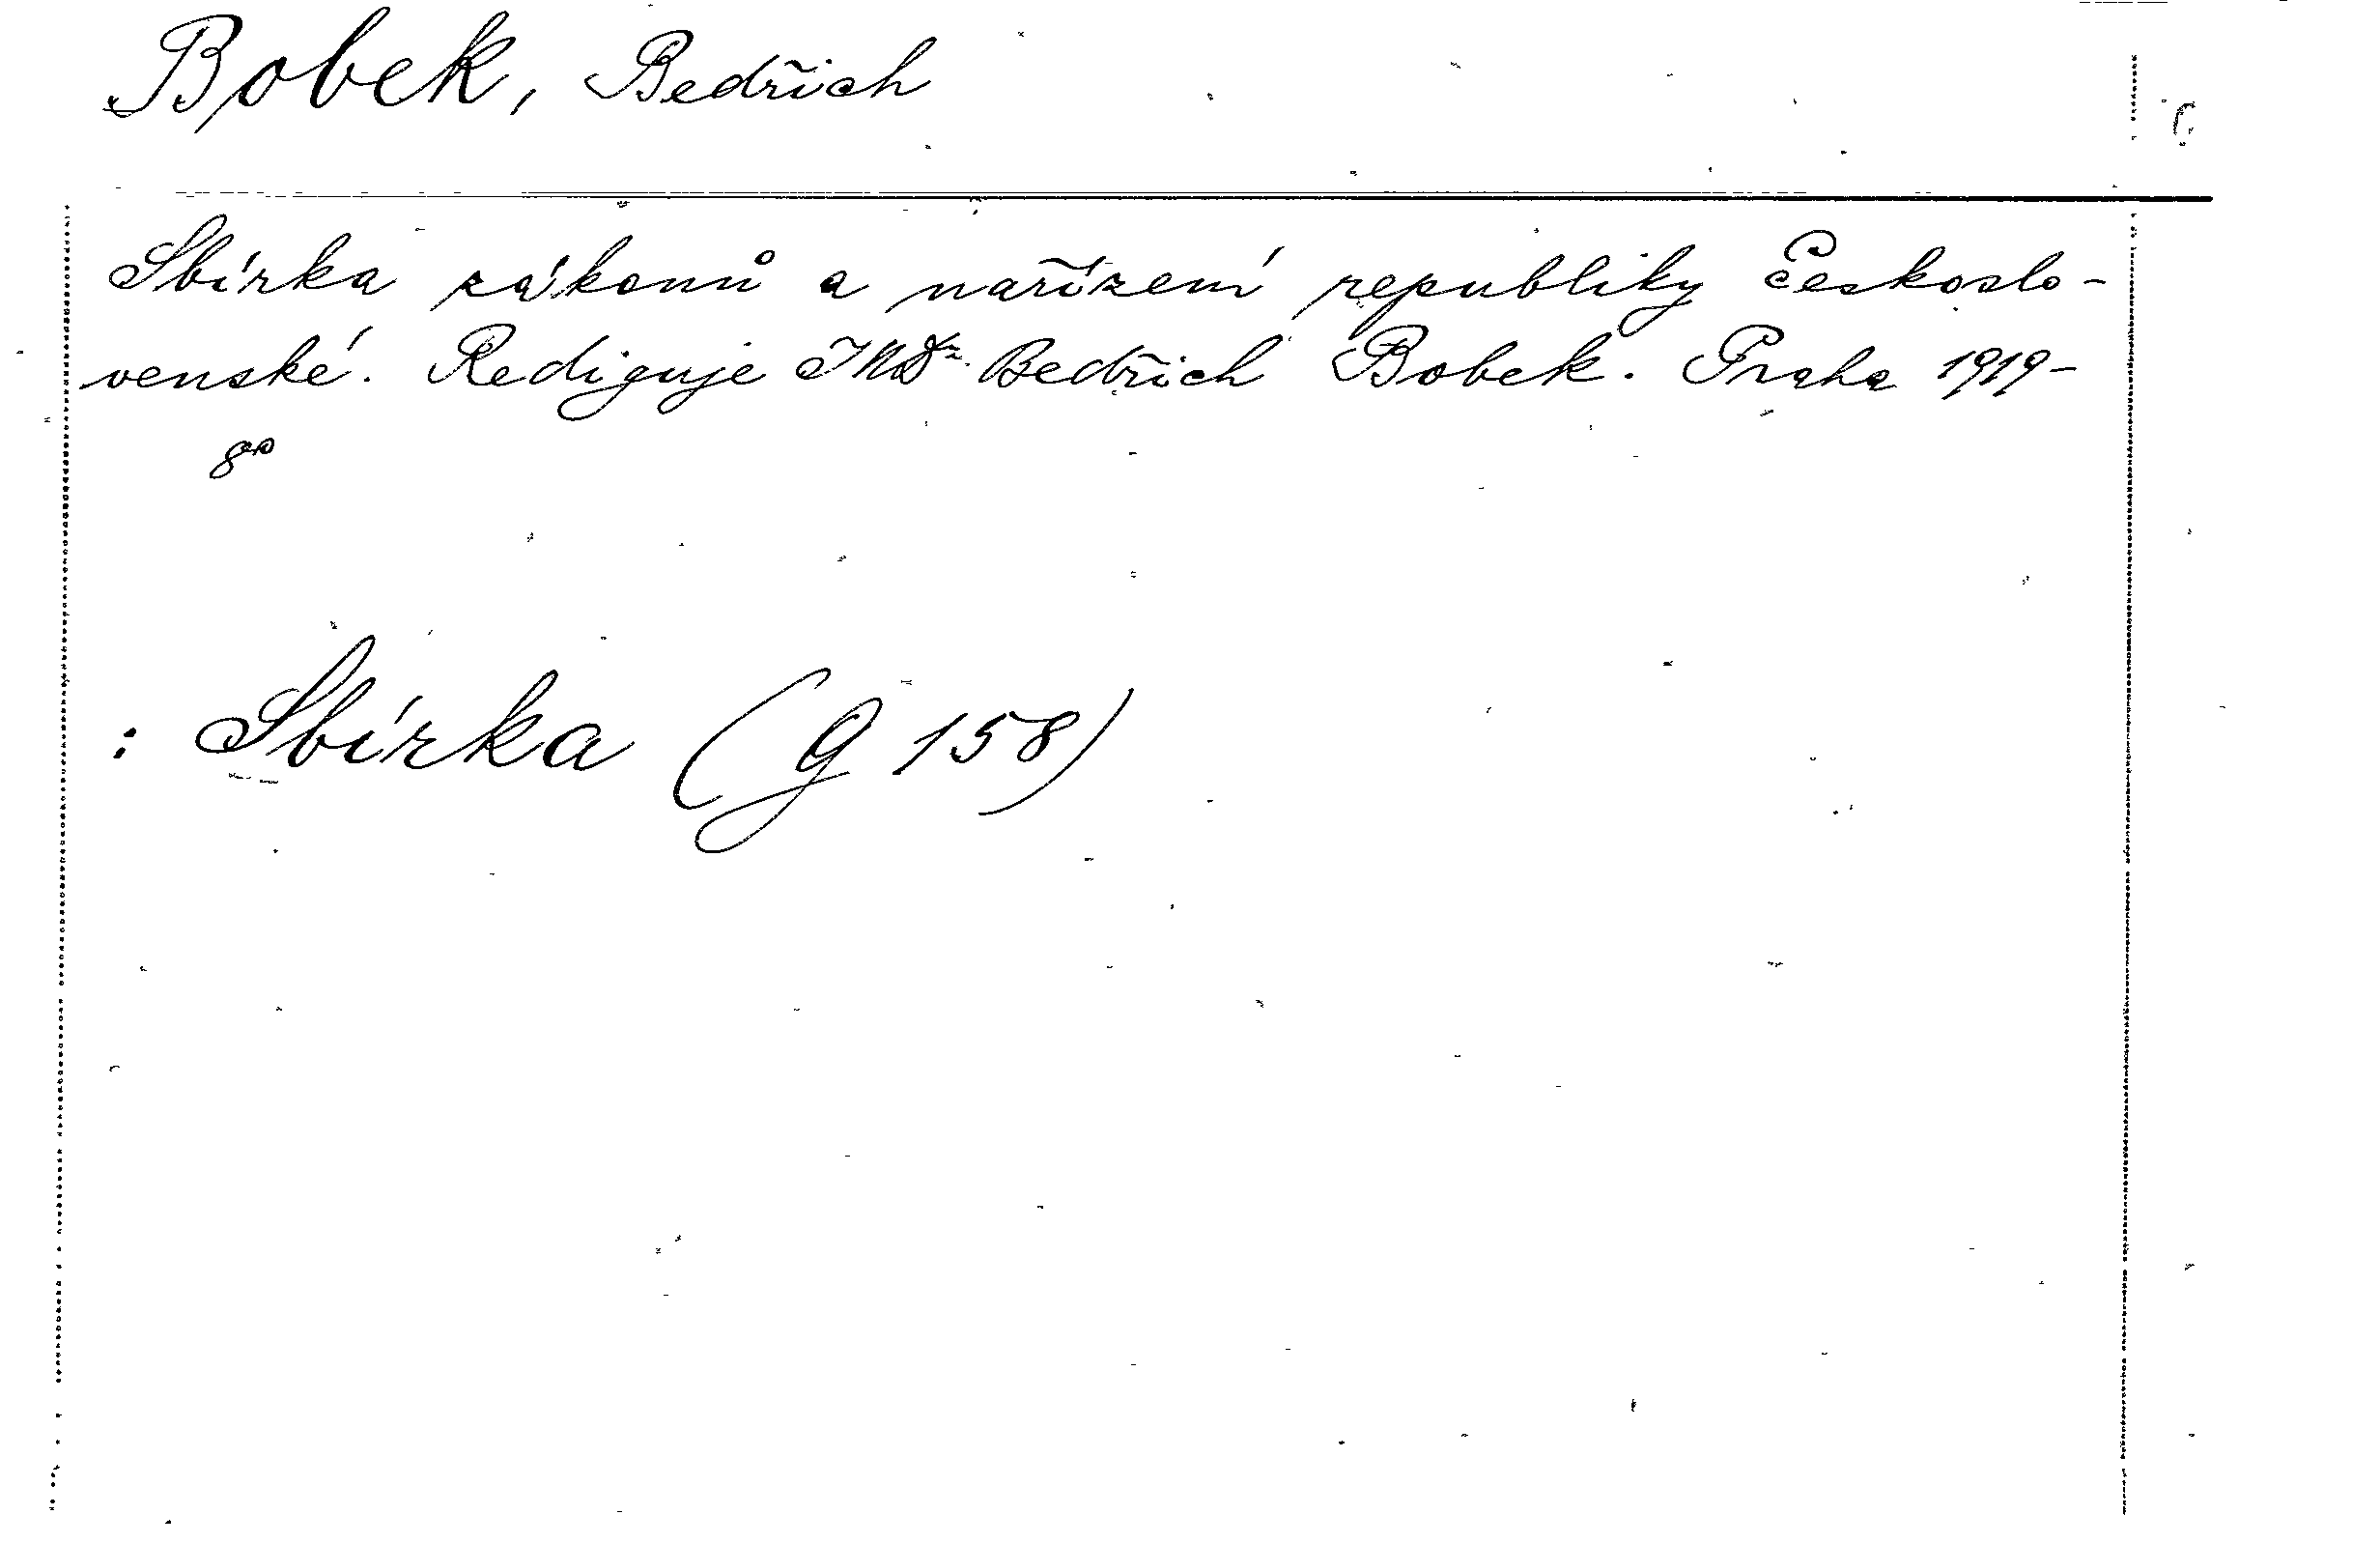 Bobek, Bedřich
Sbírka zákonů a nařízení republiky Českoslo-
venské. Rediguje JUDr. Bedřich Bobek. Praha 1919-
8°
: Sbírka (G 158)